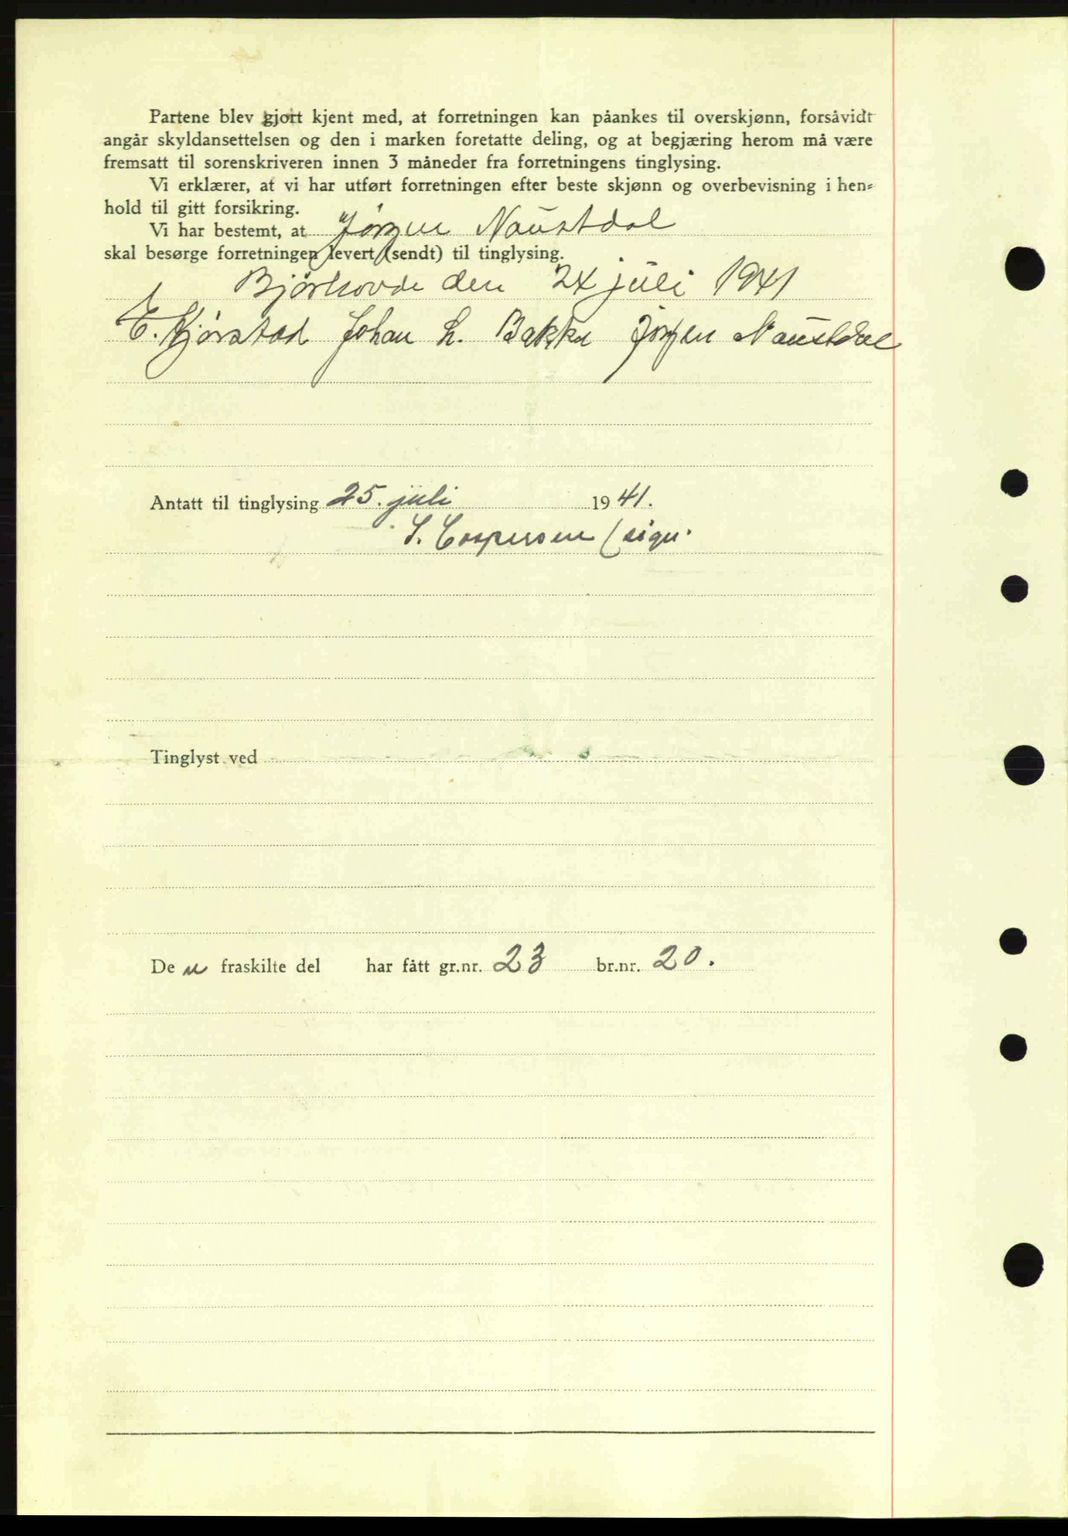 Partene blev gjort kjent med, at forretningen kan påankes til overskjønn, forsåvidt
angår skyldansettelsen og den i marken foretatte deling, og at begjæring herom må være
fremsatt til sorenskriveren innen 3 måneder fra forretningens tinglysing.
Vi erklærer, at vi har utført forretningen efter beste skjønn og overbevisning i hen-
hold til gitt forsikring.
Vi har bestemt, at Jörgen Naustdal
skal besørge forretningen levert (sendt) til tinglysing.
den 24 juli 1941
E. Kjörstad Johan L. Bakke Jörgen Naustdal
Antatt til tinglysing 25. juli 1941.
S. Caspersen (sign.
Tinglyst ved
De n fraskilte del har fått gr.nr. 23 br.nr. 20.